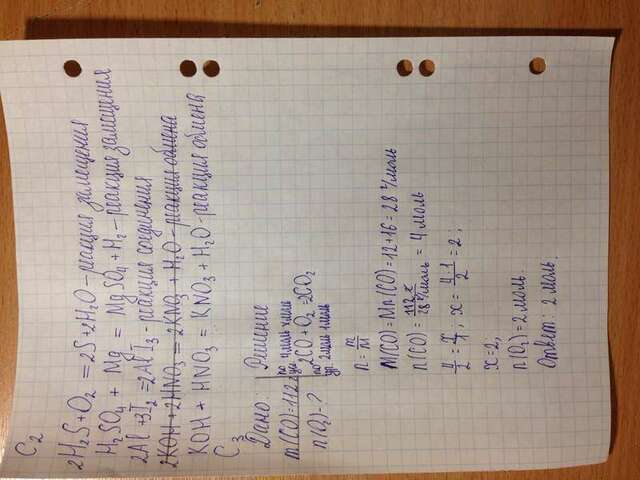 С2
2H₂S+O₂ = 2S+2H₂O – реакция замещения
H₂SO₄ + Mg = MgSO₄ + H₂ – реакция замещения
2Al + 3I₂ = 2AlI₃ – реакция соединения
2KOH + 2HNO₃ = 2KNO₃ + H₂O – реакция обмена
KOH + HNO₃ = KNO₃ + H₂O – реакция обмена
С3
Дано: Решение
m(CO)=112г по усл 4 моль x моль
2CO + O₂ = 2CO₂
n(O₂) - ? по ур. 2 моль 1 моль
n = m/M
M(CO) = Mr(CO) = 12+16 = 28 г/моль
n(CO) = 112 г/28 г/моль = 4 моль
4/2 = x/1; x = 4·1/2 = 2;
x = 2,
n(O₂) = 2 моль.
Ответ: 2 моль.